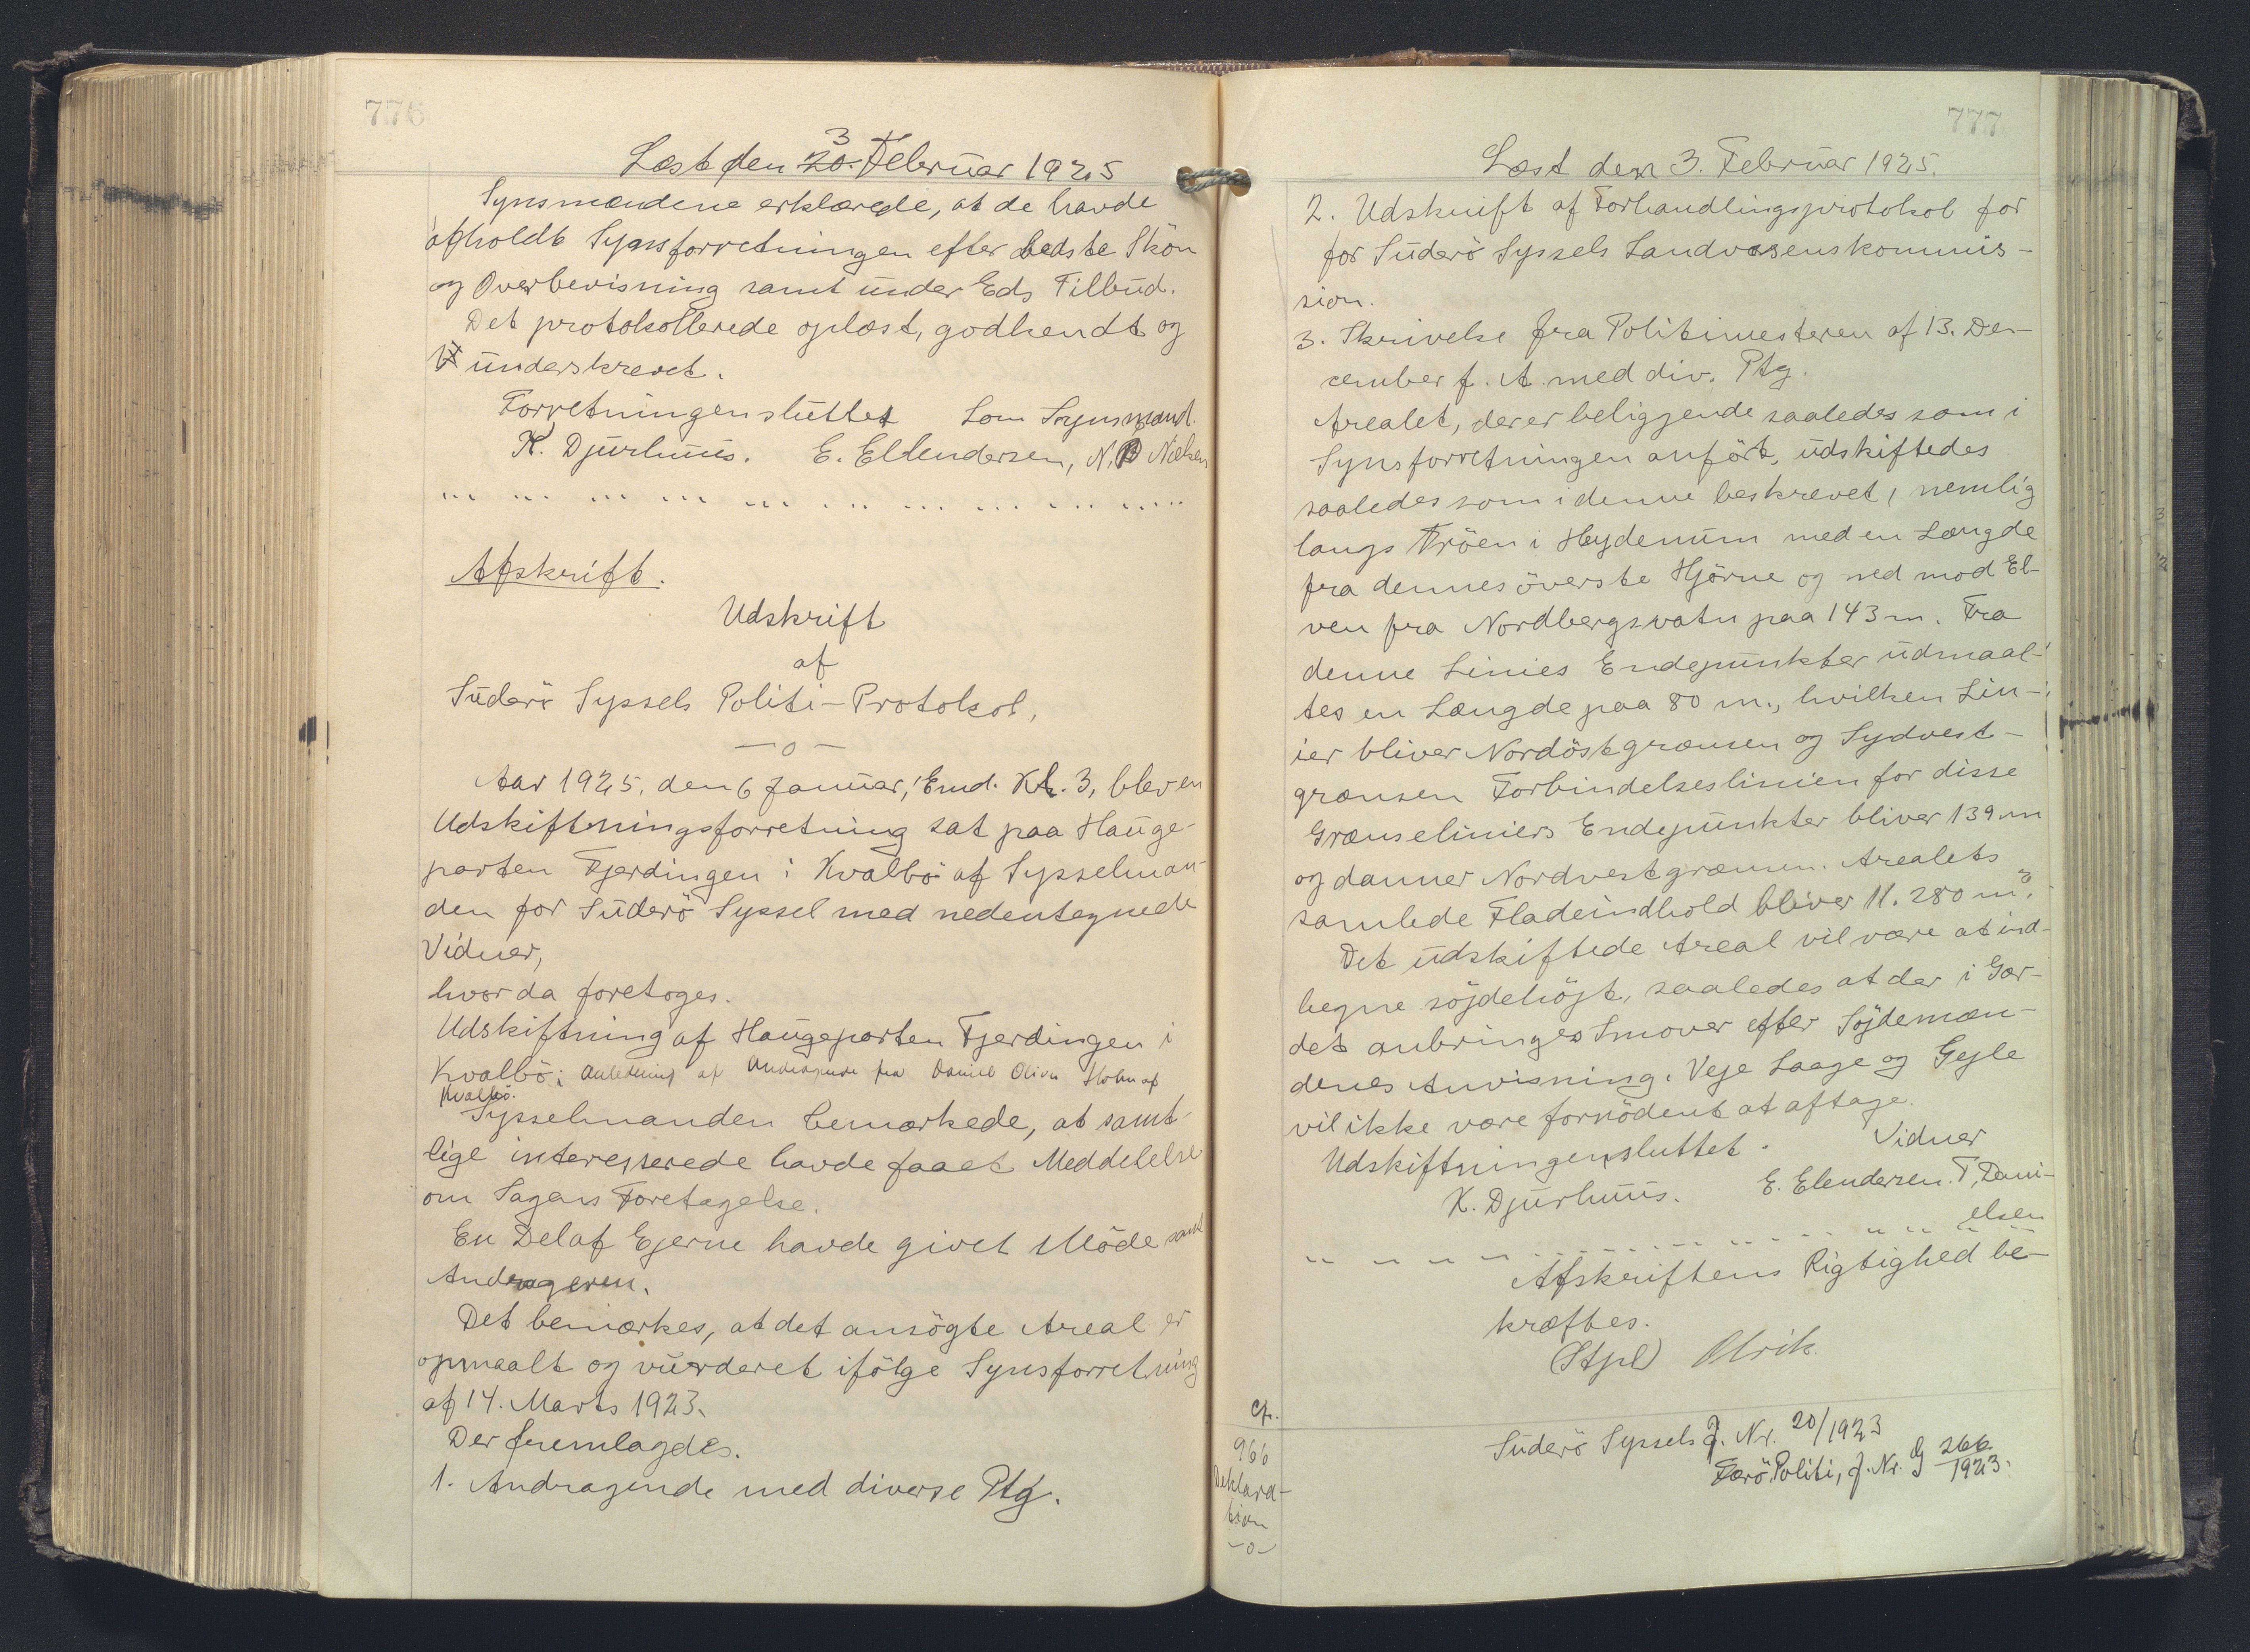 776
Læst den 20. 3 Februar 1925
Synsmændene erklærede, at de havde
afholdt Synsforretningen efter bedste Skön
og Overbevisning samt under Eds Tilbud.
Det protokollerede oplæst, godkendt og
underskrevet.
Forretningen sluttet Som Synsmænd.
K. Djurhuus. E. Ellendersen, N. P Nielsen
Afskrift.
Udskrift
af
Suderö Syssels Politi-Protokol,
—o—
Aar 1925, den 6 Januar, Emd. Kl. 3, blev en
Udskiftningsforretning sat paa Hauge-
parten Fjerdingen i Kvalbö af Sysselman-
den for Suderö Syssel med nedentegnede
Vidner,
hvor da foretoges.
Udskiftning af Haugeparten Fjerdingen i
Kvalbö i Anledning af Andragende fra Daniel Oliver Holm af
Kvalbö.
Sysselmanden bemærkede, at samt-
lige interesserede havde faaet Meddelelse
om Sagens Foretagelse.
En Del af Ejerne havde givet Möde samt
Andrageren.
Det bemærkes, at det ansögte Areal er
opmaalt og vurderet ifölge Synsforretning
af 14. Marts 1923.
Der fremlagdes.
1. Andragende med diverse Ptg.
777
Læst den 3. Februar 1925.
2. Udskrift af Forhandlingsprotokol for
for Suderö Syssels Landvæsenskommis-
sion.
3. Skrivelse fra Politimesteren af 13. De-
cember f. A. med div. Ptg.
Arealet, der er beliggende saaledes som i
Synsforretningen anført, udskiftedes
saaledes som i denne beskrevet, nemlig
langs Tröen i Heydenum med en Længde
fra dennes överste Hjörne og ned mod El-
ven fra Nordbergsvatn paa 143 m. Fra
denne Linies Endepunkter udmaal-
tes en Længde paa 80 m., hvilken Lin-
ier bliver Nordöstgrænsen og Sydvest-
grænsen Forbindelseslinien for disse
Grænseliniers Endepunkter bliver 139 m
og danner Nordvestgrænsen. Arealets
samlede Fladeindhold bliver 11.280 m².
Det udskiftede Areal vil være at ind-
hegne söjdehöjt, saaledes at der i Gær-
det anbringes Smover efter Söjdemæn-
denes Anvisning. Veje Laage og Gejle
vil ikke være fornödent at aftage.
Udskiftningen sluttet. Vidner
K. Djurhuus. E. Elendersen. T, Dani-
elsen
Afskriftens Rigtighed be-
kræftes.
(Stpl) Ulrik.
Suderö Syssels J. Nr. 20/1923
Færö Politi, J. Nr. G 266/1923.
cfr.
966
Deklara-
tion
-o-